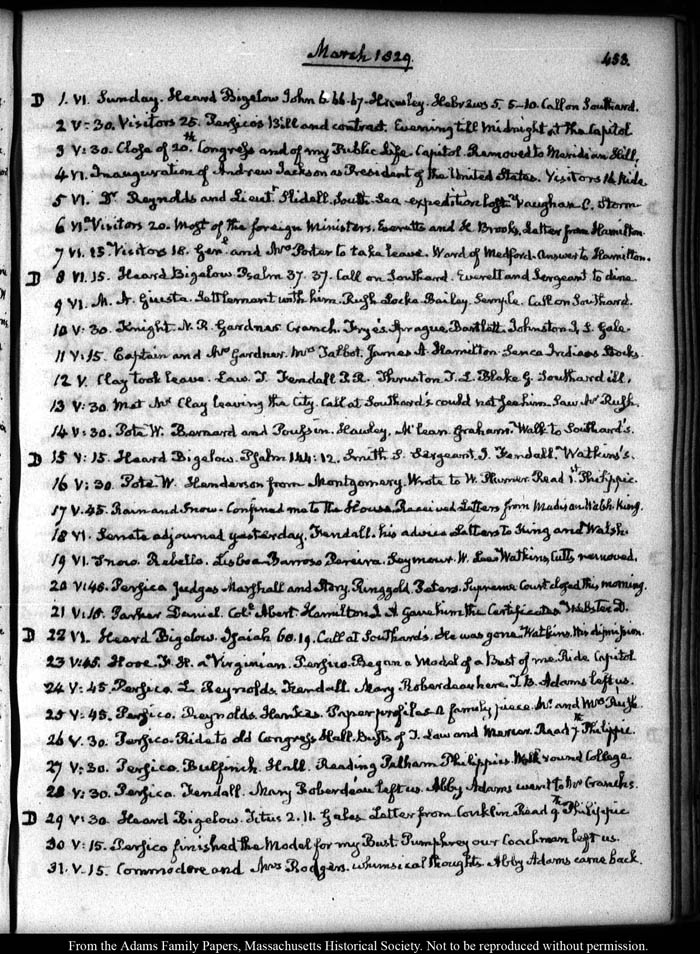 March 1829.
453.
D 1. VI. Sunday. Heard Bigelow John 6. 66. 67. Hawley. Hebrews 5. 5-10. Call on Southard.
2 V:30. Visitors 25. Persico's Bill and contract. Evening till midnight at the Capitol
3 V:30. Close of 20th. Congress and of my Public Life. Capitol. Removed to Meridian Hill.
4 VI. Inauguration of Andrew Jackson as President of the United States. Visitors 14 Ride
5 VI. Dr. Reynolds and Lieut. Slidell. South Sea expedition lost. Vaughan C. Storm
6 VI. Visitors 20. Most of the foreign Ministers. Everett and Brooks. Letter from Hamilton
7 VI. 15. Visitors 18. Genl. and Mrs Porter to take leave. Ward of Medford. Answer to Hamilton.
D 8 VI. 15. Heard Bigelow. Psalm 37. 37. Call on Southard. Everett and Sergeant to dine
9 VI. M. A. Giusta. Settlement with him. Rush Locke Bailey. Semple. Call on Southard.
10 V:30. Knight N. R. Gardner Cranch. Frye's Sprague Bartlett Johnston J. S. Gale.
11 V:15. Captain and Mrs Gardner. Mrs Talbot. James A. Hamilton. Seneca Indians Stocks.
12 V. Clay took leave. Law. T. Fendall P. R. Thruston T. L. Blake G. Southard ill.
13 V:30. Met Mr Clay leaving the City. Call at Southard's could not see him. Saw Mr Rush.
14 V:30. Pote W. Bernard and Poussin. Hawley. McLean Graham. Walk to Southard's.
D 15 V:15. Heard Bigelow. Psalm 144:12. Smith S. Sergeant J. Fendall. Watkins's.
16 V:30. Pote W. Henderson from Montgomery. Wrote to W. Plumer. Read 1st. Philippic.
17 V.45. Rain and Snow. Confined me to the House. Received Letters from Madison Walsh King.
18 VI. Senate adjourned yesterday. Fendall. his advice Letters to King and Walsh.
19 VI. Snow. Rebello. Lisboa Barroso Pereira. Seymour. W. Lee. Watkins, Cutts removed.
20 V:45. Persico Judges Marshall and Story. Ringgold Peters. Supreme Court closed this morning.
21 V:15. Parker Daniel. Coll. Abert. Hamilton J. A. Gave him the Certificates. Webster D.
D 22 VI. Heard Bigelow. Isaiah 60. 19. Call at Southard's. He was gone. Watkins. His dismission.
23 V:45. Hove. a Virginian. Persico. Began a Model of a Bust of me. Ride Capitol
24 V:45 Persico. L. Reynolds. Fendall. Mary Roberdeau here. T. B. Adams left us.
25 V:45. Persico. Reynolds. Hankes. Paper profiles a family piece. Mr. and Mrs Rush.
26 V.30. Persico. Ride to old Congress Hall. Busts of T. Law and Mercer. Read 7th Philippic.
27 V:30. Persico. Bulfinch. Hall. Reading Pelham Philippics. Walk round College
28 V:30. Persico. Fendall. Mary Roberdeau left us. Abby Adams went to Mr Cranch's.
D 29 VI:30. Heard Bigelow. Titus 2. 11. Gales. Letter from Conklin. Read 9th Philippic
30 V:15. Persico finished the Model for my Bust. Pumphrey our Coachman left us.
31. V.15. Commodore and Mrs Rodgers. whimsical thoughts. Abby Adams came back.
From the Adams Family Papers, Massachusetts Historical Society. Not to be reproduced without permission.